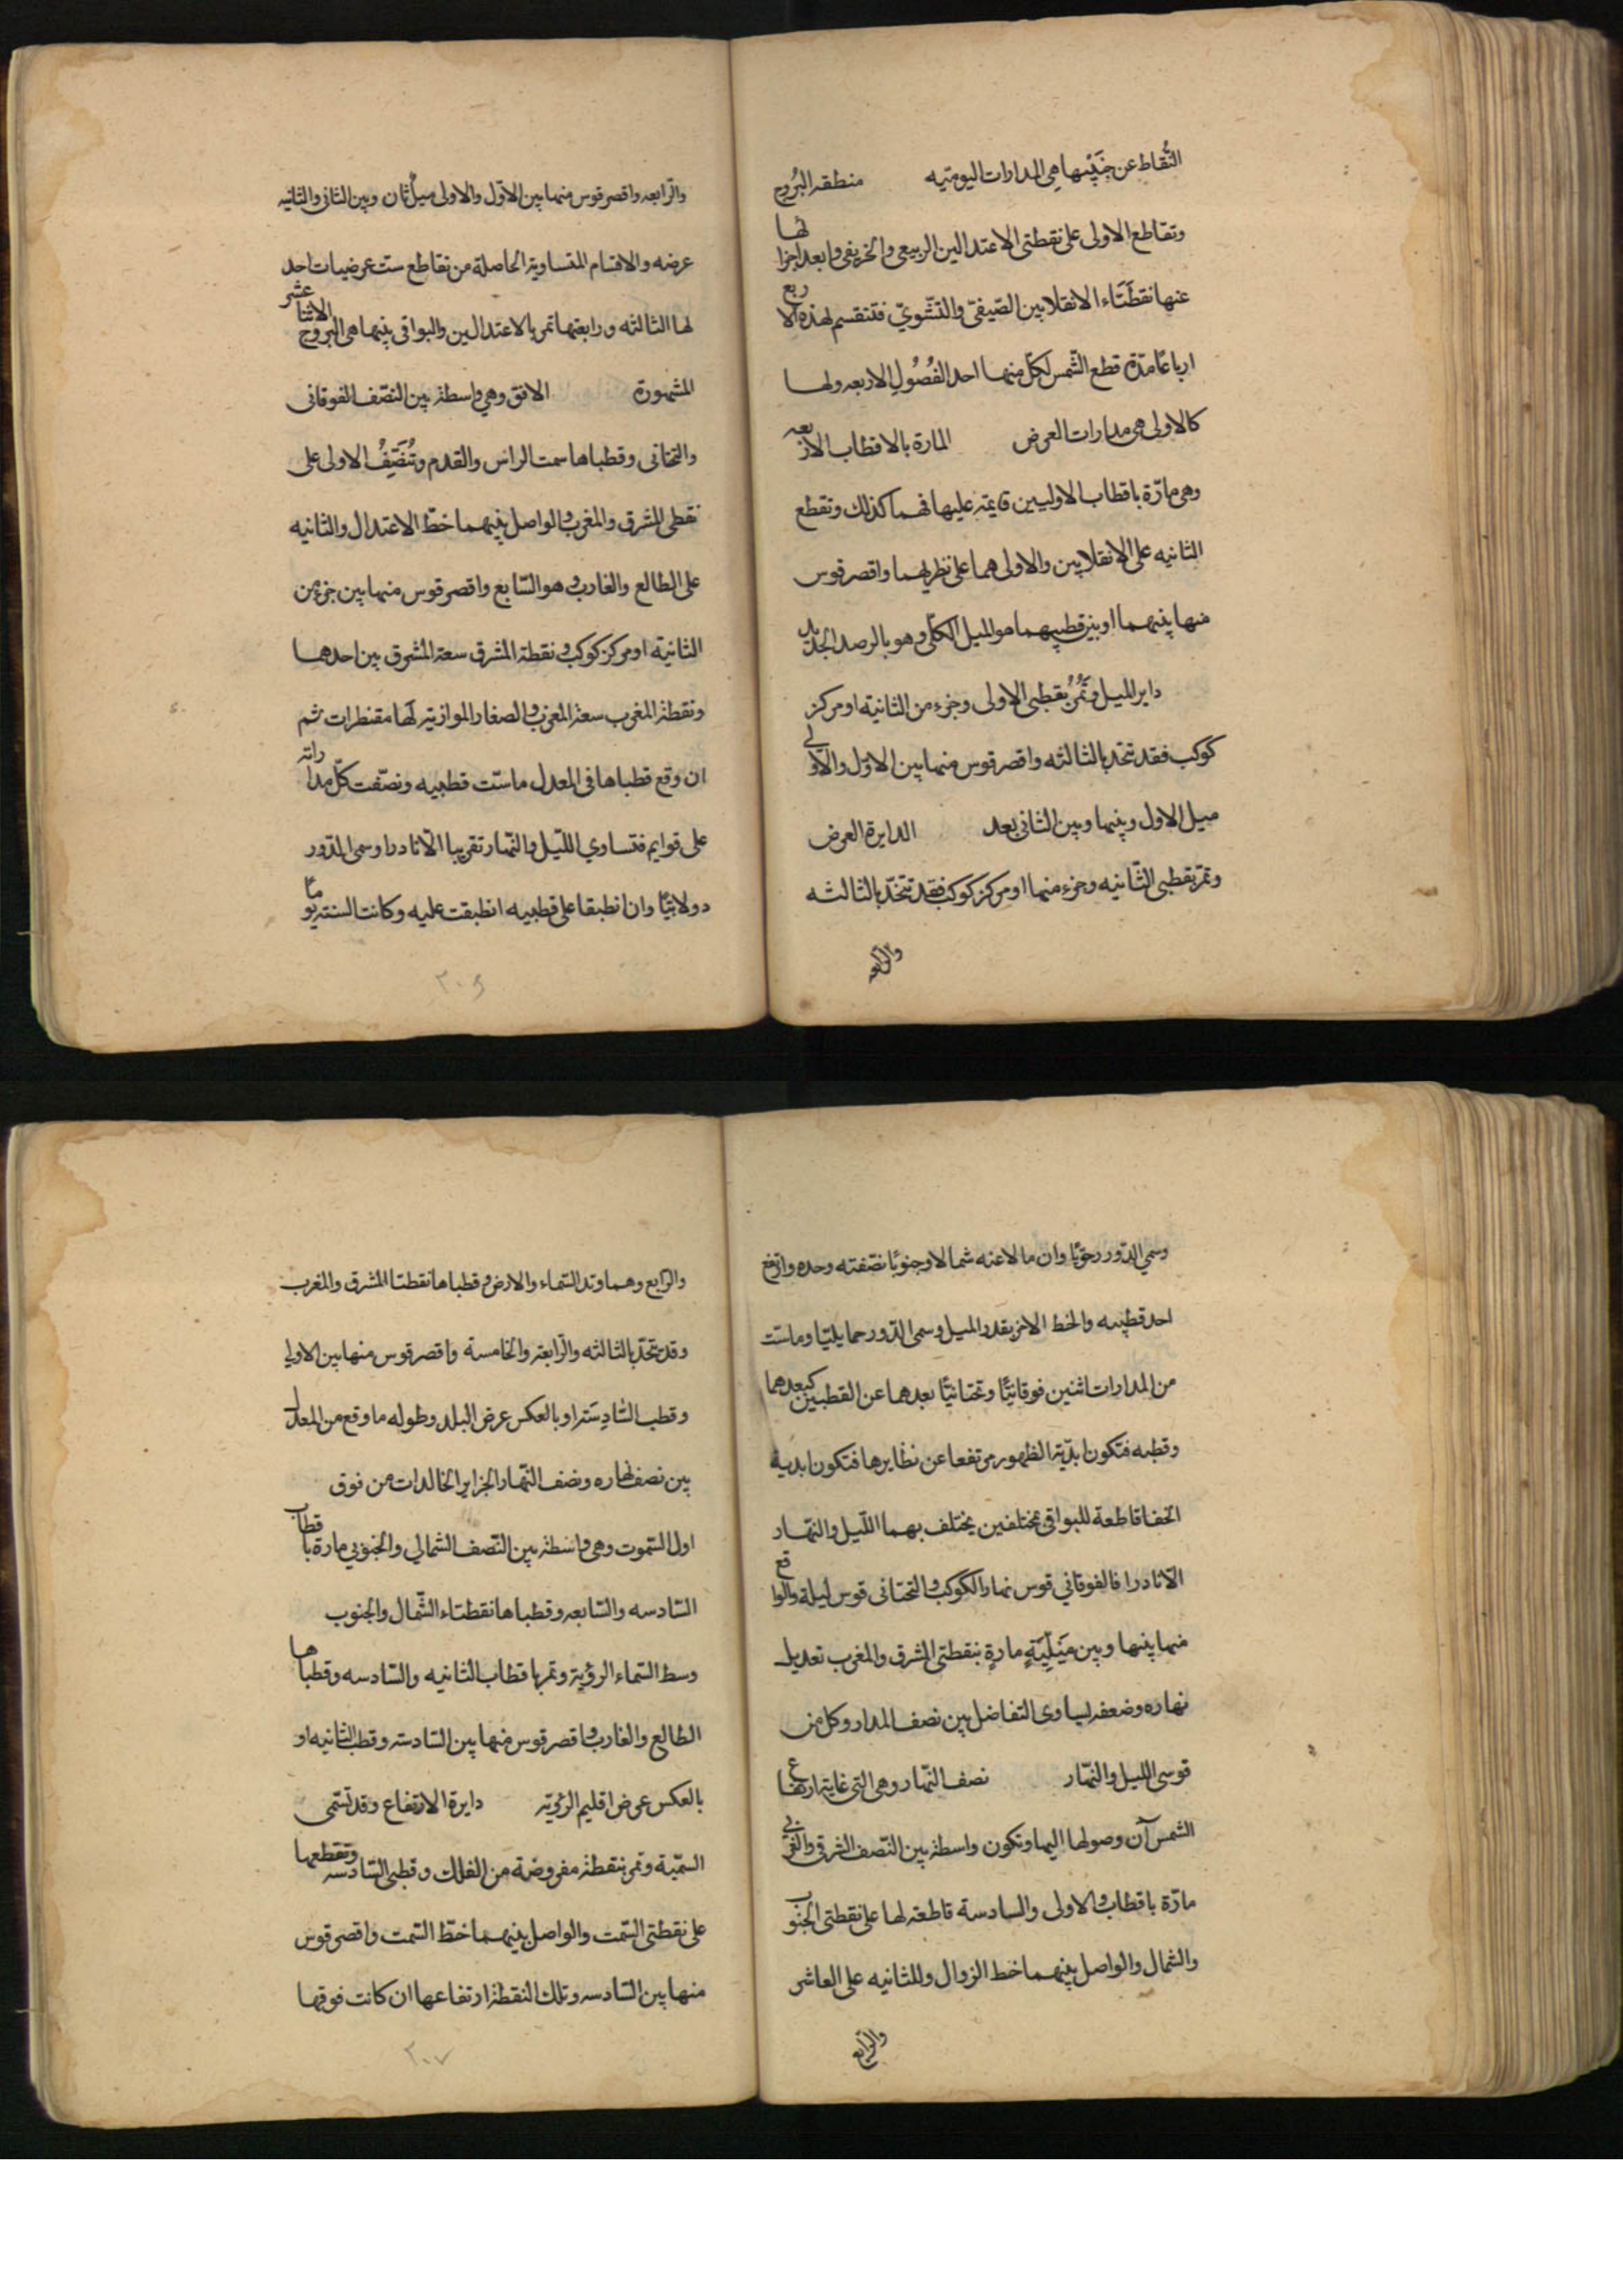 النُّقاط عن جَنبَيْها هي المدارات اليوميه منطقه البُروج
وتقاطع الاولى على نقطتي الاعتدالين الربيعي والخريفي وابعد اجزائها
عنها نقطتاء الانقلابين الصّيفيّ والشّتويّ فتنقسم لهذه الاربع
ارباعًا مدّة قطع الشّمس لكلّ منها احد الفُصُولِ الاربعه ولها
كالاولى هي مدارات العرض المارة بالاقطاب الاربعه
وهي مارّة باقطاب الاوليين قايمة عليها فهما كذلك وتقطع
الثانيه على الانقلابين والاولى هما على نظريهما واقصر قوس
منها بينهما او بين قطبيهما هو الميل الكلّي وهو بالرصد الجديد
داير الميل وتَمُرُّ بقطبي الاولى وجزء من الثانية او مركز
كوكب فقد تتحد بالثالثه واقصر قوس منها بين الاوّل والاولى
ميل الاول وبينها وبين الثاني بعد الدايرة العرض
وتمرّ بقطبي الثّانيه وجزء منها او مركز كوكب فقد تتحدّ بالثالثه
والرّابعه
والرّابعه واقصر قوس منها بين الاوّل والاولى ميلٌ ثان وبين الثاني والثانيه
عرضه والاقسام المتساوية الحاصلة من تقاطع ست عرضيات احد
لها الثالثه ورابعتها تمر بالاعتدالين والبواقي بينها هي البروج الاثنا عشر
المشهورة الافق وهي واسطة بين النصّف الفوقاني
والتحتاني وقطباها سمت الراس والقدم وتُنَصِّفُ الاولى على
نقطتي المشرق والمغرب والواصل بينهما خطّ الاعتدال والثانيه
على الطالع والغارب وهو السّابع واقصر قوس منها بين جزء من
الثانية او مركز كوكب ونقطة المشرق سعة المشرق بين احدهما
ونقطة المغرب سعة المغرب والصغار الموازية لَها مقنطرات ثم
ان وقع قطباها في المعدل ماسّت قطبيه ونصّفت كلّ مداراته
على قوايم فتساوي اللّيل والنّهار تقريبا الّا نادرا وسمي الدّور
دولابيًّا وان انطبقا على قطبيه انطبقت عليه وكانت السنة يومًا
٢٠٦
وسمي الدّور رحويًّا وان مالا عنه شمالا وجنوبًا نصّفته وحده وارتفع
احد قطبيه والخط الاخر بقدر الميل وسمى الدّور حمايليّا وماسّت
من المدارات اثنين فوقانيًّا وتحتانيًّا بعدهما عن القطبين كبعدهما
وقطبه فتكون ابديّة الظهور مرتفعا عن نظايرها فتكون ابدية
الخفا قاطعة للبواقي مختلفين يختلف بهما اللّيل والنهّار
الّا نادرا فالفوقاني قوس نهار الكوكب والتحتاني قوس ليلة والواقع
منها بينها وبين مَيْلِيَّةٍ مارةٍ بنقطتي المشرق والمغرب تعديل
نهاره وضعفه يساوى التفاضل بين نصف المدار وكل من
قوسي الليل والنهّار نصف النّهار وهي التي غاية ارتفاع
الشمس آن وصولها اليها وتكون واسطة بين النّصف الشرقي والغربي
مارّة باقطاب الاولى والسادسة قاطعة لها على نقطتي الجنوب
والشمال والواصل بينهما خط الزوال والمثانيه على العاشر
والرّابع
والرّابع وهما وتد السّماء والارض وقطباها نقطتا المشرق والمغرب
وقد تتحدّ بالثالثه والرّابعة والخامسة واقصر قوس منها بين الاولي
وقطب السّادِسَة او بالعكس عرض البلد وطوله ما وقع من المعدل
بين نصف نهاره ونصف النّهار الجزاير الخالدات من فوق
اول السّموت وهي واسطة بين النّصف الشمالي والجنوبي مارة باقطاب
السّادسه والسّابعه وقطباها نقطتاء الشّمال والجنوب
وسط السّماء الرؤية وتمر باقطاب الثانيه والسّادسه وقطباها
الطّالع والغارب واقصر قوس منها بين السّادسة وقطب الثانيه او
بالعكس عرض اقليم الرؤيّة دايرة الارتفاع وقد تسّمى
السّمتية وتمر بنقطة مفروضة من الفلك وقطبي السّادسه وتقطعها
على نقطتي السّمت والواصل بينهما خطّ السّمت واقصر قوس
منها بين السّادسه وتلك النقطة ارتفاعها ان كانت فوقها
٢٠٧